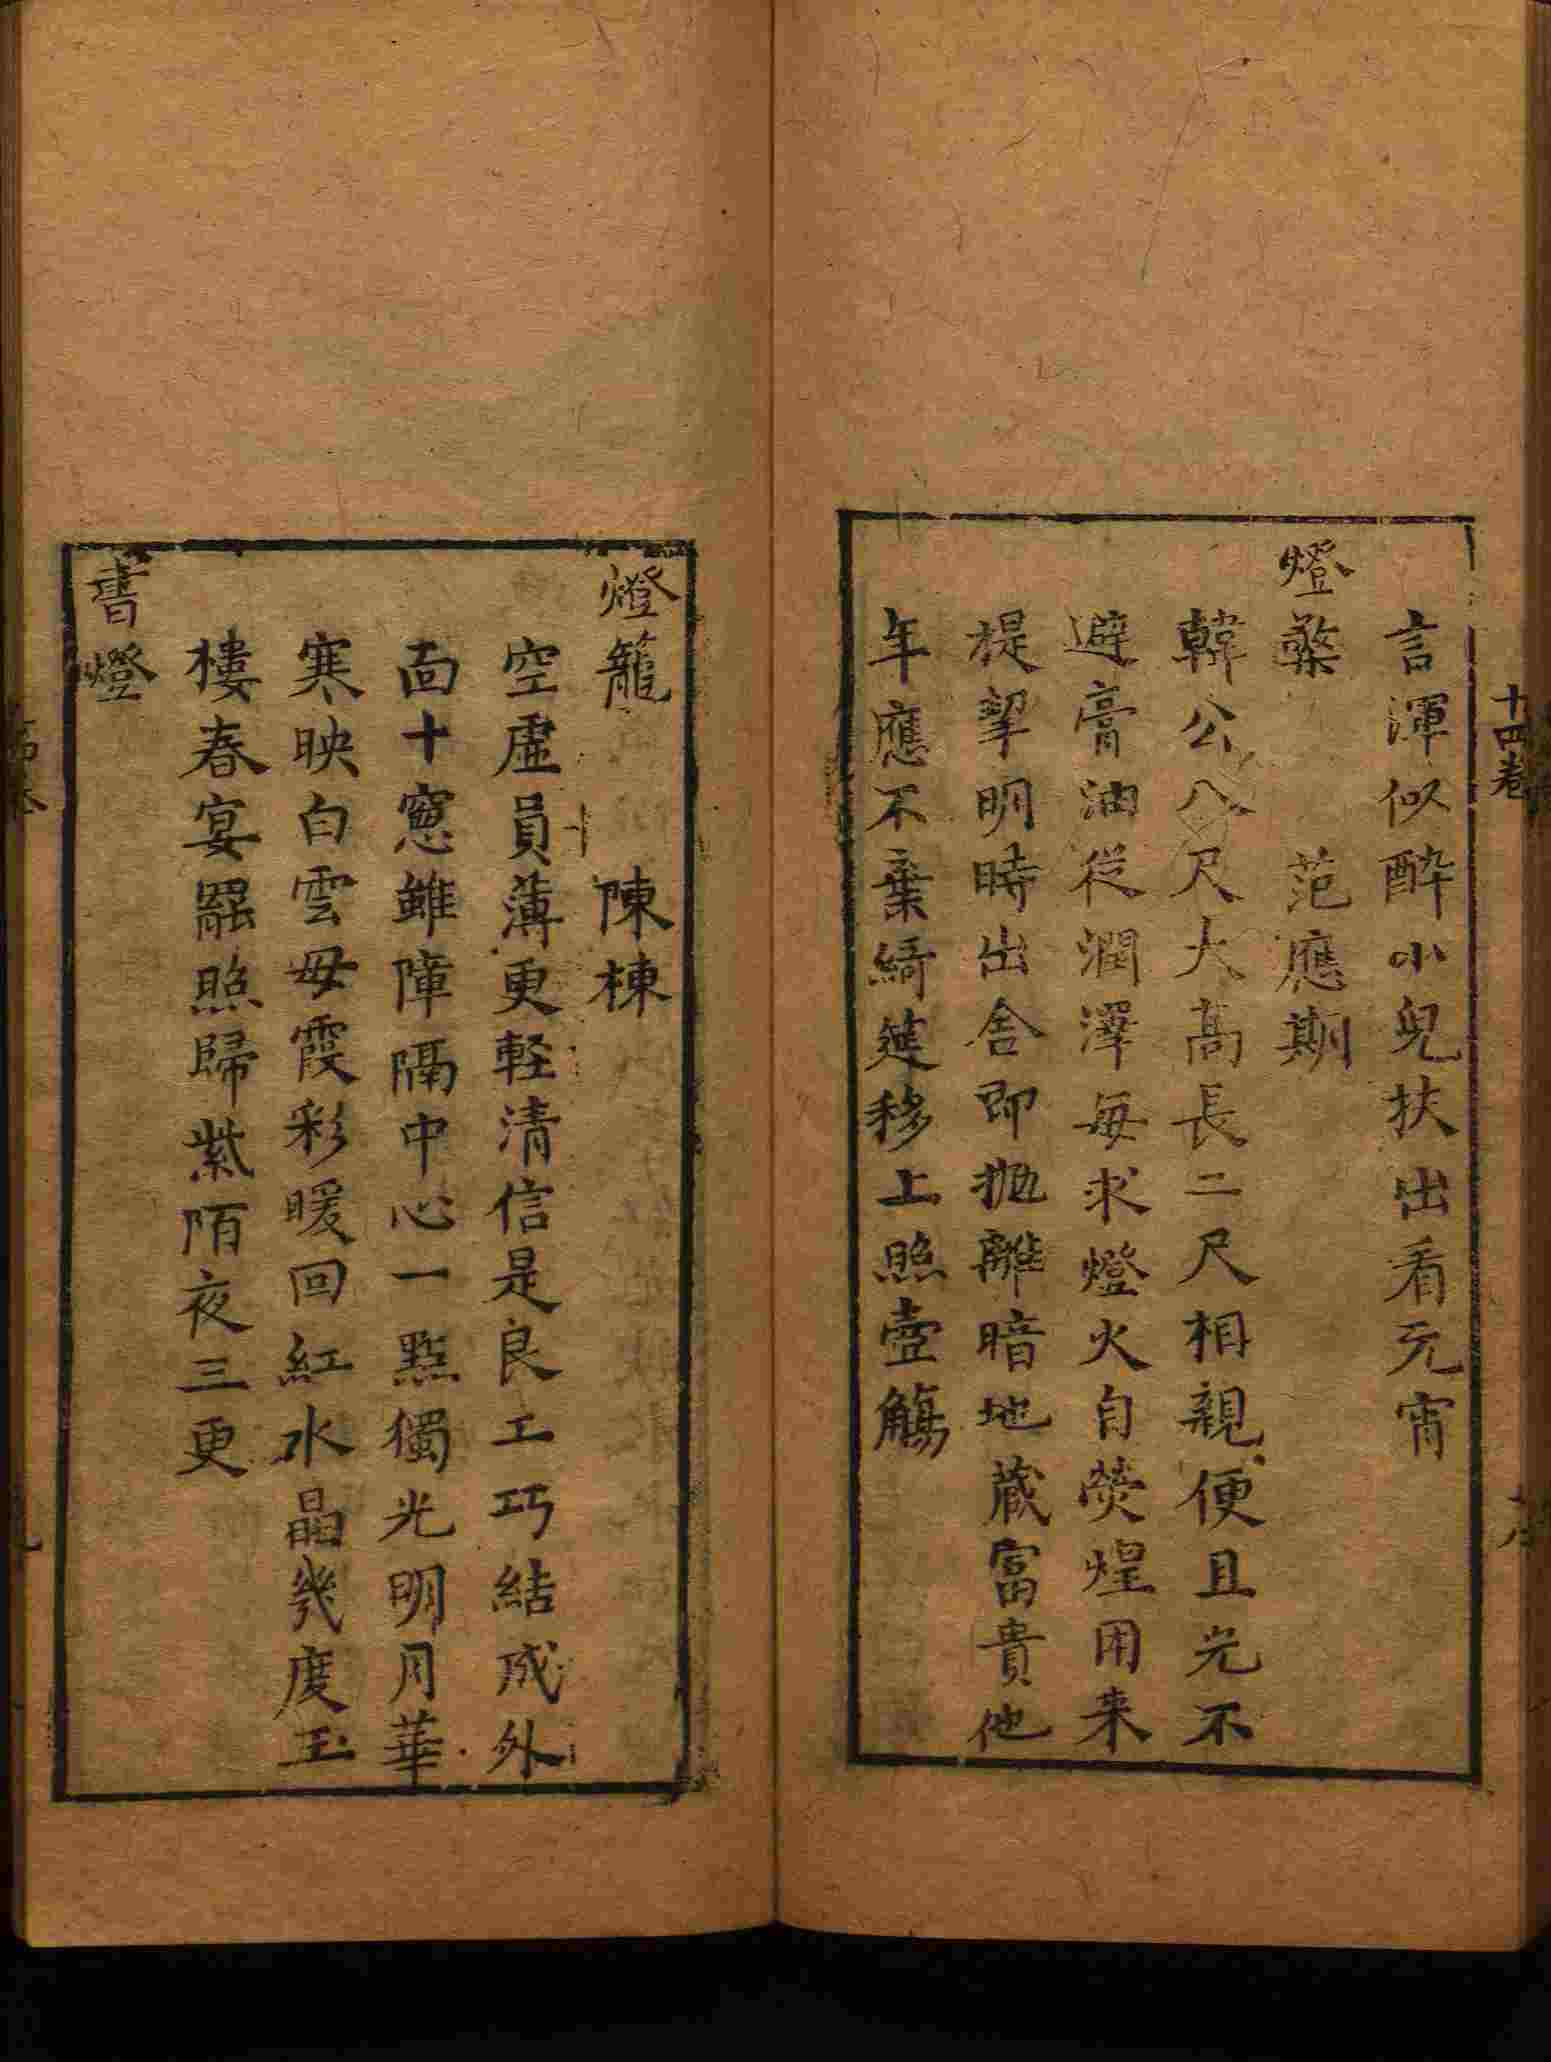 十四卷
言渾似醉小兒扶出看元宵
燈檠　范應期
韓公八尺大高長二尺相親便且光不
避膏油從潤澤每求燈火自熒煌用来
提挈明時出舍即抛離暗地蔵富貴他
年應不棄綺筵移上照壺觴
燈籠　陳棟
空虛員薄更軽清信是良工巧結成外
面十窻雖障隔中心一點獨光明月華
寒映白雲母霞彩暖回紅水晶幾度玉
樓春宴罷照歸紫陌夜三更
書燈